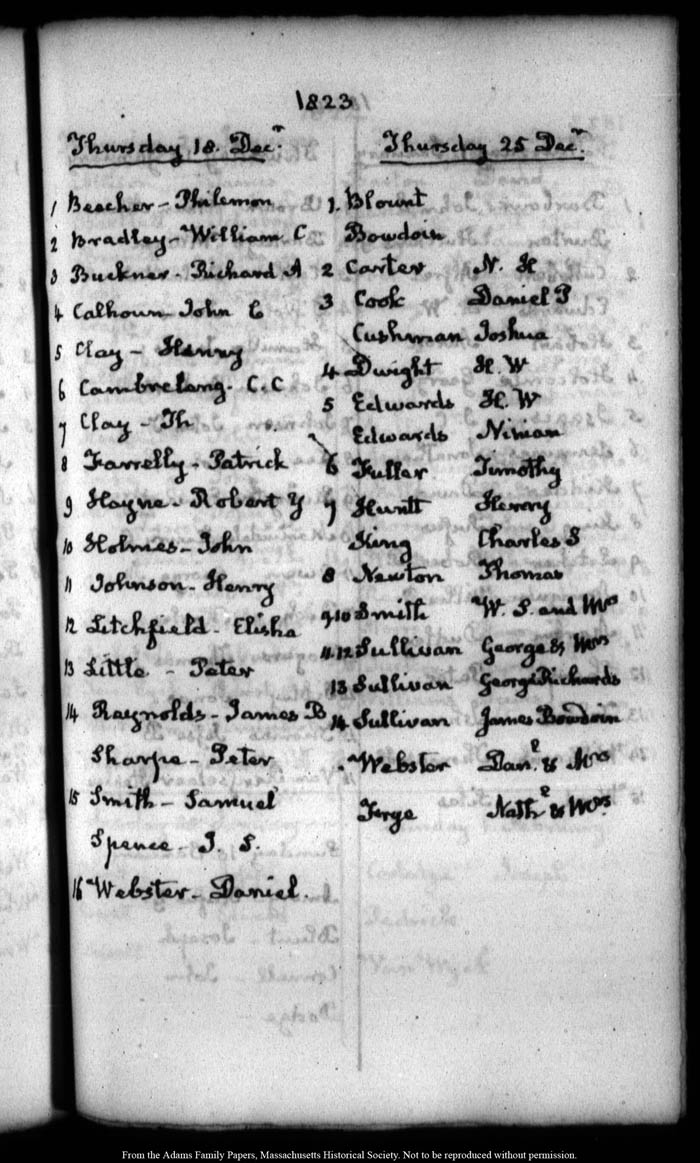 1823
Thursday 18. Decr.
1 Beecher - Philemon
2 Bradley - William C
3 Buckner - Richard A
4 Calhoun - John C
5 Clay - Henry
6 Cambreleng - C. C
7 Clay - Th
8 Farrelly - Patrick
9 Hayne - Robert Y
10 Holmes - John
11 Johnson - Henry
12 Litchfield - Elisha
13 Little - Peter
14 Raynolds - James B
Sharpe - Peter
15 Smith - Samuel
Spence - J. S.
16 Webster - Daniel.
Thursday 25 Decr.
1. Blount
Bowdoin
2 Carter N. H
3 Cook Daniel P
Cushman Joshua
4 Dwight H. W
5 Edwards H. W
Edwards Ninian
6 Fuller Timothy
7 Huntt Henry
King Charles S
8 Newton Thomas
9.10 Smith W. S. and Mrs
11.12 Sullivan George & Mrs
13 Sullivan George Richards
14 Sullivan James Bowdoin
Webster Danl. & Mrs
Nathl & Mrs.
From the Adams Family Papers, Massachusetts Historical Society. Not to be reproduced without permission.